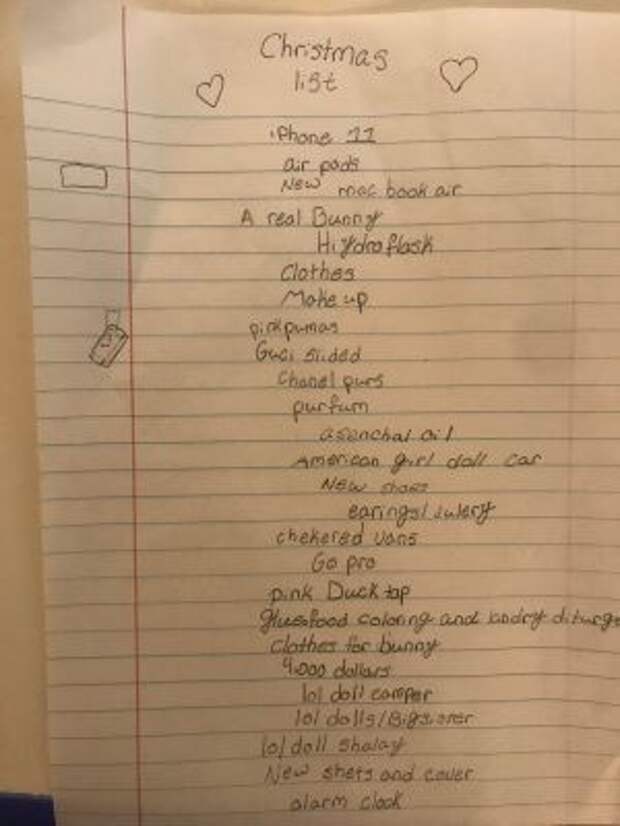 Christmas
list
iPhone 11
air pods
New mac book air
A real Bunny
Hydroflask
Clothes
Make up
pink pumas
Guci slided
Chanel purs
purfum
asenchal oil
American girl doll car
New shoes
earings/julery
chekered vans
Go pro
pink Duck tap
glue food coloring and
clothes for bunny
4,000 dollars
lol doll camper
lol dolls/
lol doll shalay
New shets and cover
alarm clock